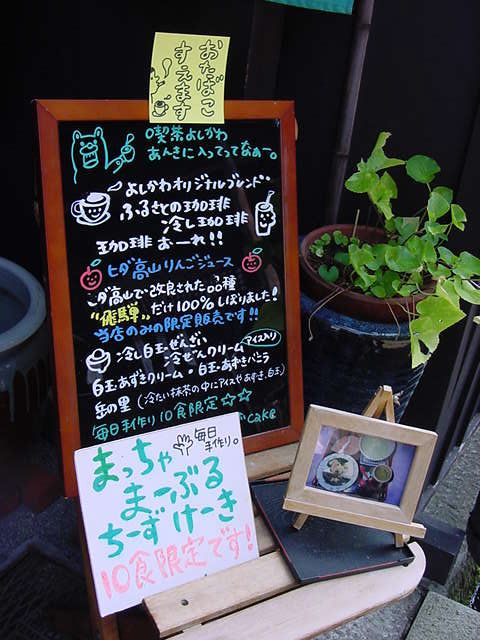 おたばこ
すえます
喫茶よしかわ
あんきに入ってってなぁー。
よしかわオリジナルブレンド
ふるさとの珈琲
冷し珈琲
珈琲おーれ!!
ヒダ高山りんごジュース
ヒダ高山で改良された品種
"飛騨"だけ100%しぼりました!
当店のみの限定販売です!!
冷し白玉ぜんざい
アイス入り
冷ぜんクリーム
白玉あずきクリーム・白玉・あずきバニラ
岳の里(冷たい抹茶の中にアイスやあずき,白玉)
毎日手作り10食限定☆☆
cake
毎日
手作り。
まっちゃ
まーぶる
ちーずけーき
10食限定です!